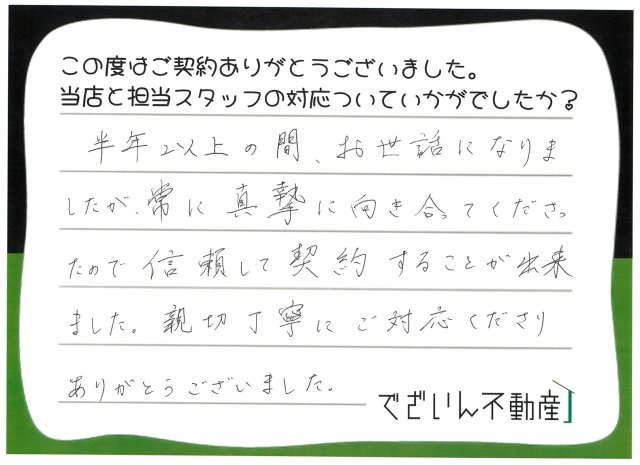 この度はご契約ありがとうございました。
当店と担当スタッフの対応ついていかがでしたか？
半年以上の間、お世話になりま
したが、常に真摯に向き合ってくださっ
たので信頼して契約することが出来
ました。親切丁寧にご対応くださり
ありがとうございました。
でざいん不動産